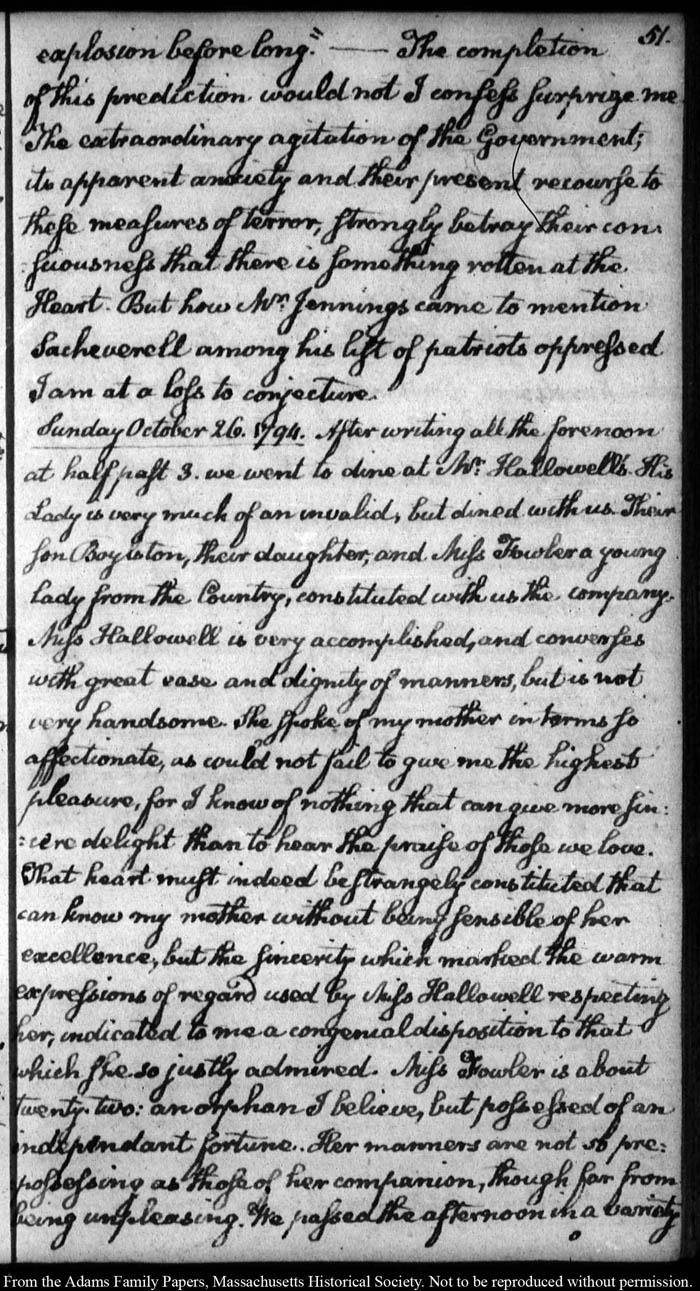 51.
explosion before long." —— The completion
of this prediction would not I confess surprize me.
The extraordinary agitation of the Government;
its apparent anxiety and their present recourse to
these measures of terror, strongly betray their con-
:suousness that there is something rotten at the
Heart. But how Mr. Jennings came to mention
Sacheverell among his list of patriots oppressed
I am at a loss to conjecture.
Sunday October 26. 1794. After writing all the forenoon
at half past 3. we went to dine at Mr. Hallowell's. His
Lady is very much of an invalid, but dined with us. Their
son Boylston, their daughter, and Miss Fowler a young
Lady from the Country, constituted with us the company.
Miss Hallowell is very accomplished, and converses
with great ease and dignity of manners, but is not
very handsome. She spoke of my mother in terms so
affectionate, as could not fail to give me the highest
pleasure, for I know of nothing that can give more sin:
:cere delight than to hear the praise of those we love.
That heart must indeed be strangely constituted that
can know my mother without being sensible of her
excellence, but the sincerity which marked the warm
expressions of regard used by Miss Hallowell respecting
her, indicated to me a congenial disposition to that
which she so justly admired. Miss Fowler is about
twenty-two: an orphan I believe, but possessed of an
independant fortune. Her manners are not so pre:
possessing as those of her companion, though far from
being unpleasing. We passed the afternoon in a variety
From the Adams Family Papers, Massachusetts Historical Society. Not to be reproduced without permission.